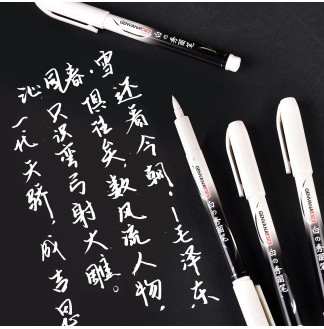 沁园春·雪
一代天骄!成吉思
只识弯弓射大雕。
俱往矣数风流人物,
还看今朝!—毛泽东
白の秀丽笔
白の秀丽笔
白の秀丽笔
白の秀丽笔